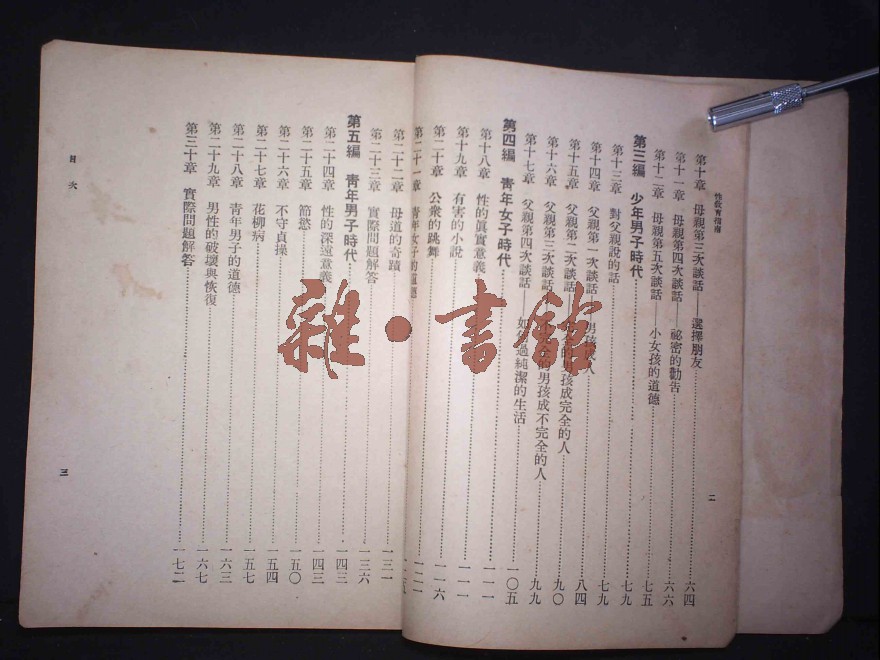 性教育指南
第十章 母親第三次談話——選擇朋友 六四
第十一章 母親第四次談話——祕密的勸告 六六
第十二章 母親第五次談話——小女孩的道德 七五
第三編 少年男子時代 七九
第十三章 對父親說的話 七九
第十四章 父親第一次談話——男孩成人 八四
第十五章 父親第二次談話——完全的男孩成完全的人 九〇
第十六章 父親第三次談話——不完全的男孩成不完全的人 九九
第十七章 父親第四次談話——如何過純潔的生活 一〇五
第四編 青年女子時代 一一一
第十八章 性的眞實意義 一一一
第十九章 有害的小說 一一六
第二十章 公衆的跳舞 一二一
二
第二十一章 青年女子的道德 一二五
第二十二章 母道的奇蹟 一三一
第二十三章 實際問題解答 一三六
第五編 青年男子時代 一四三
第二十四章 性的深遠意義 一四三
第二十五章 節慾 一五〇
第二十六章 不守貞操 一五四
第二十七章 花柳病 一五七
第二十八章 青年男子的道德 一六三
第二十九章 男性的破壞與恢復 一六七
第三十章 實際問題解答 一七二
目次
三
雜·書館